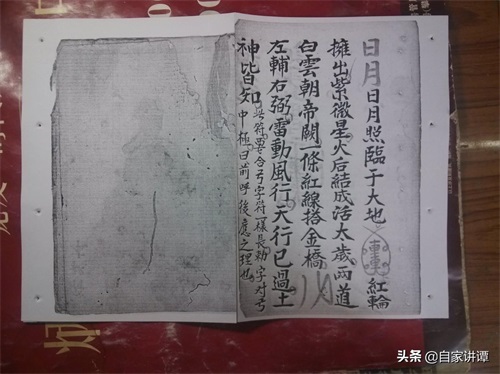 日月日月照臨于大地紅輪
擁出紫微星火后結成活太歲两道
白雲朝帝闕一條紅線搭金橋
左輔右弼雷動風行天行已過土
神皆知
符要合弓字符一樣長勅字对弓
中極曰前呼後應之理也
头条 @自家讲谭